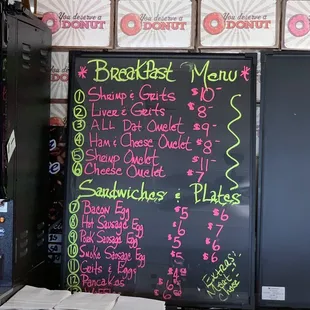 You deserve a DONUT
You deserve a DONUT
You deserve a DONUT
* Breakfast Menu *
1 Shrimp & Grits $10-
2 Liver & Grits $8-
3 ALL Dat Omelet $9-
4 Ham & Cheese Omelet $8
5 Shrimp Omelet $11-
6 Cheese Omelet $7
Sandwiches & Plates
7 Bacon Egg $5 $6
8 Hot Sausage Egg $6 $7
9 Pork Sausage Egg $5 $6
10 Smoke Sausage Egg $5
11 Grits & Eggs
12 Pancakes
Extras:
Meat